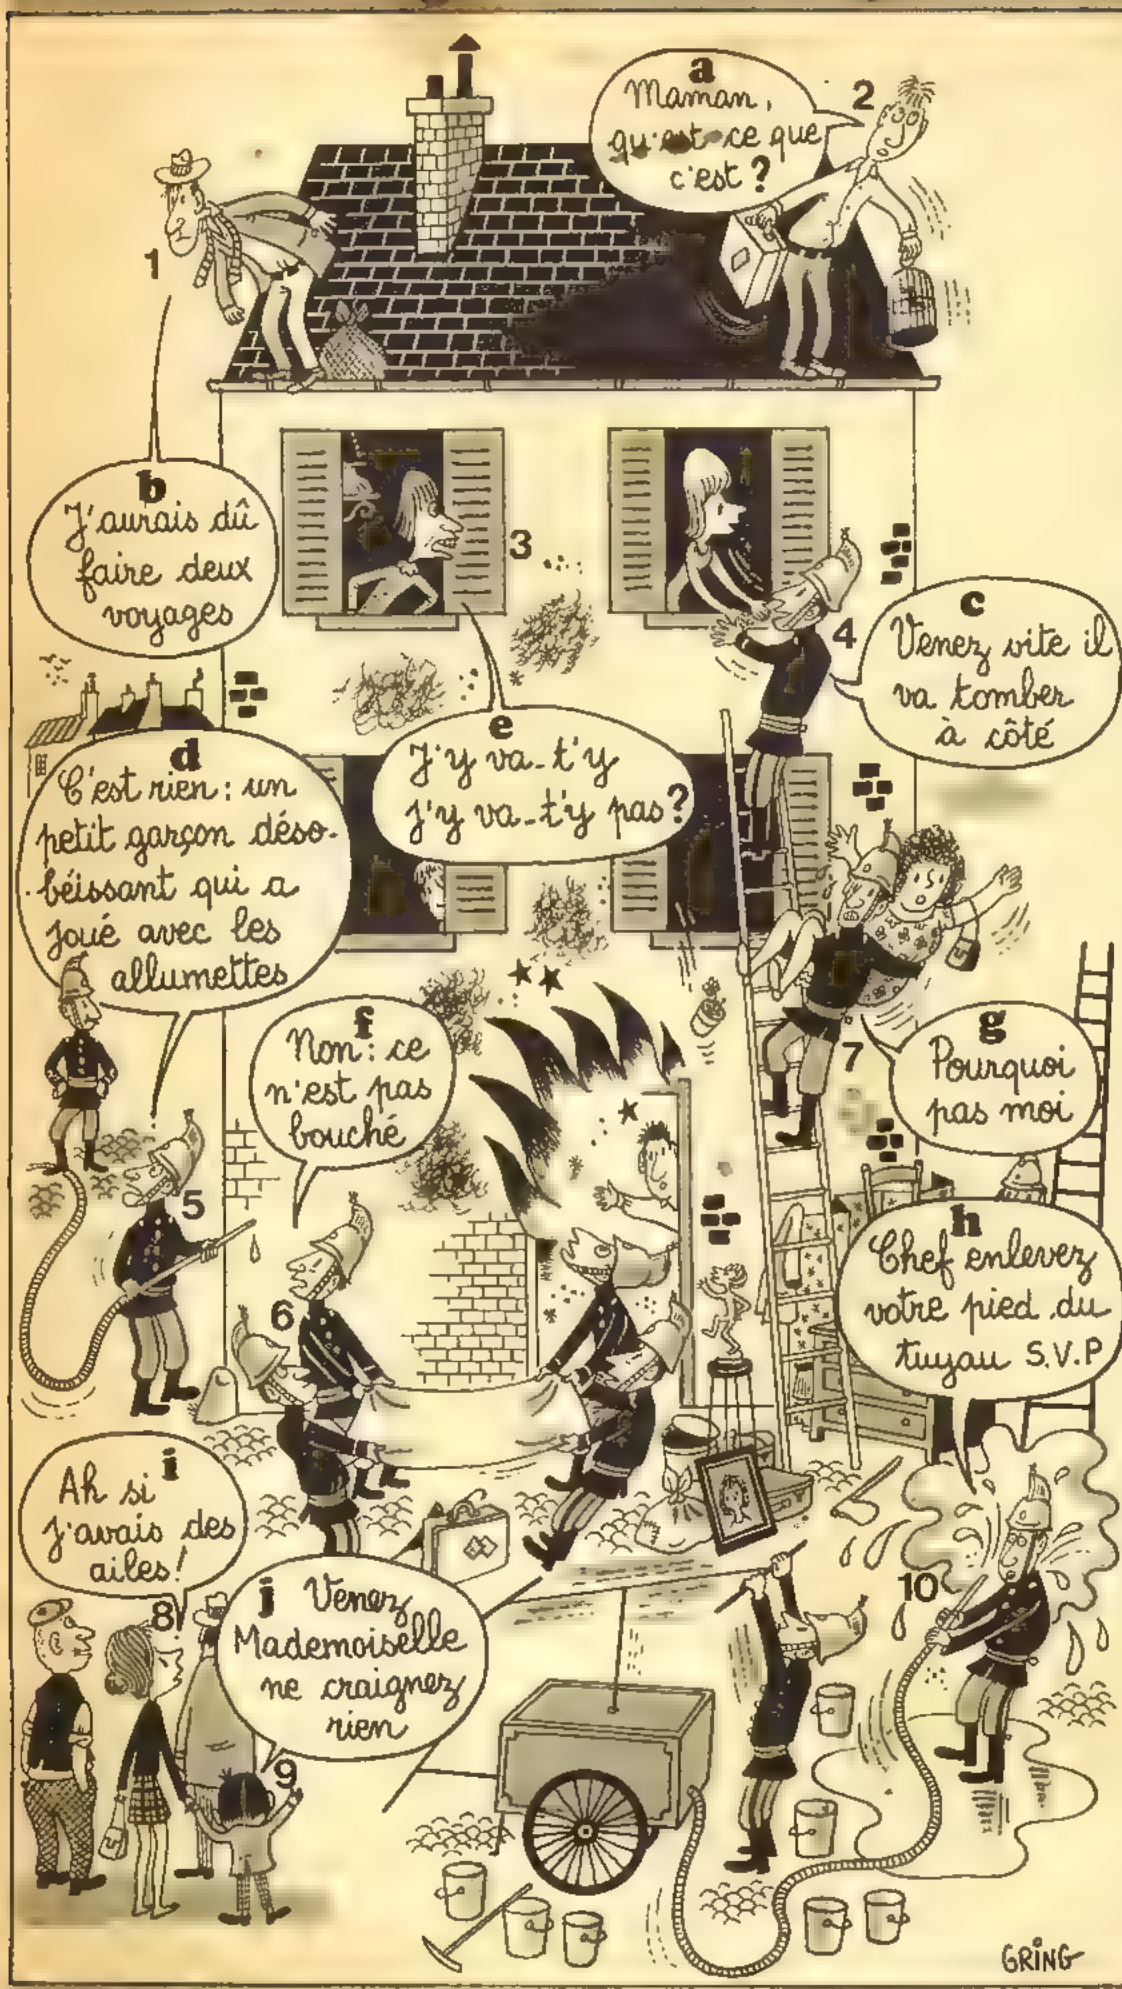 a
Maman,
qu'est-ce que
c'est ?
2
1
b
J'aurais dû
faire deux
voyages
3
4
c
Venez vite il
va tomber
à côté
d
C'est rien : un
petit garçon déso-
béissant qui a
joué avec les
allumettes
e
J'y va-t'y
j'y va-t'y pas ?
f
Non : ce
n'est pas
bouché
g
Pourquoi
pas moi
7
5
6
h
Chef enlevez
votre pied du
tuyau S.V.P
i
Ah si
j'avais des
ailes !
8
j
Venez
Mademoiselle
ne craignez
rien
9
10
GRING